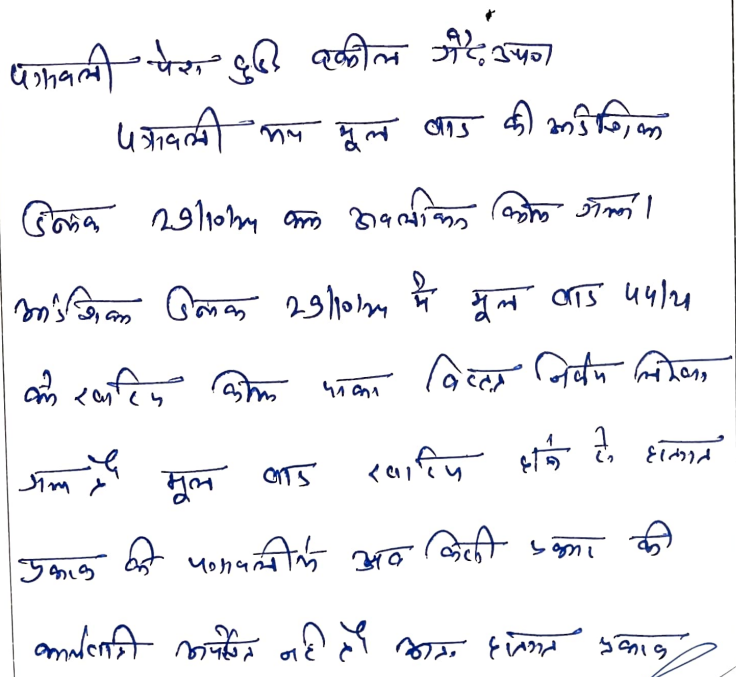 पत्रावली पेश हुई वकील प्रार्थी उप०
पत्रावली मय मूल वाद की आदेशिका
दिनांक 29/10/24 का अवलोकन किया गया।
आदेशिका दिनांक 29/10/24 में मूल वाद
को खारिज किया जाकर विस्तृत निर्णय लिखा
गया है मूल वाद खारिज होने से हस्तगत
प्रकरण की पत्रावली में अब किसी प्रकार की
कार्यवाही अपेक्षित नहीं है अतः हस्तगत प्रकरण